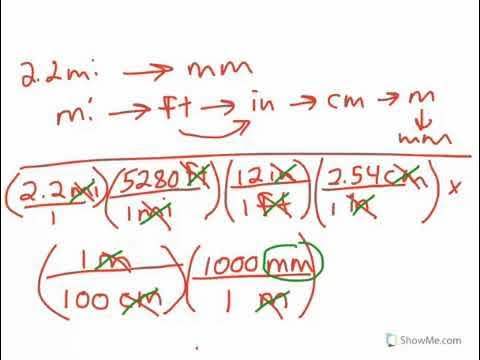 2.2mi → mm
mi → ft → in → cm → m
↓
mm
(2.2mi/1)(5280ft/1mi)(12in/1ft)(2.54cm/1in) x
(1m/100cm)(1000mm/1m)
ShowMe.com